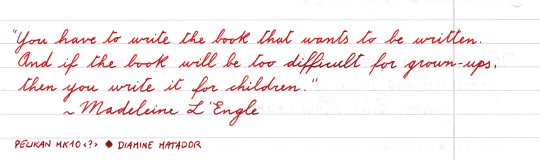 "You have to write the book that wants to be written.
And if the book will be too difficult for grown-ups,
then you write it for children."
~ Madeleine L'Engle
PELIKAN MK10 <?> ◆ DIAMINE MATADOR